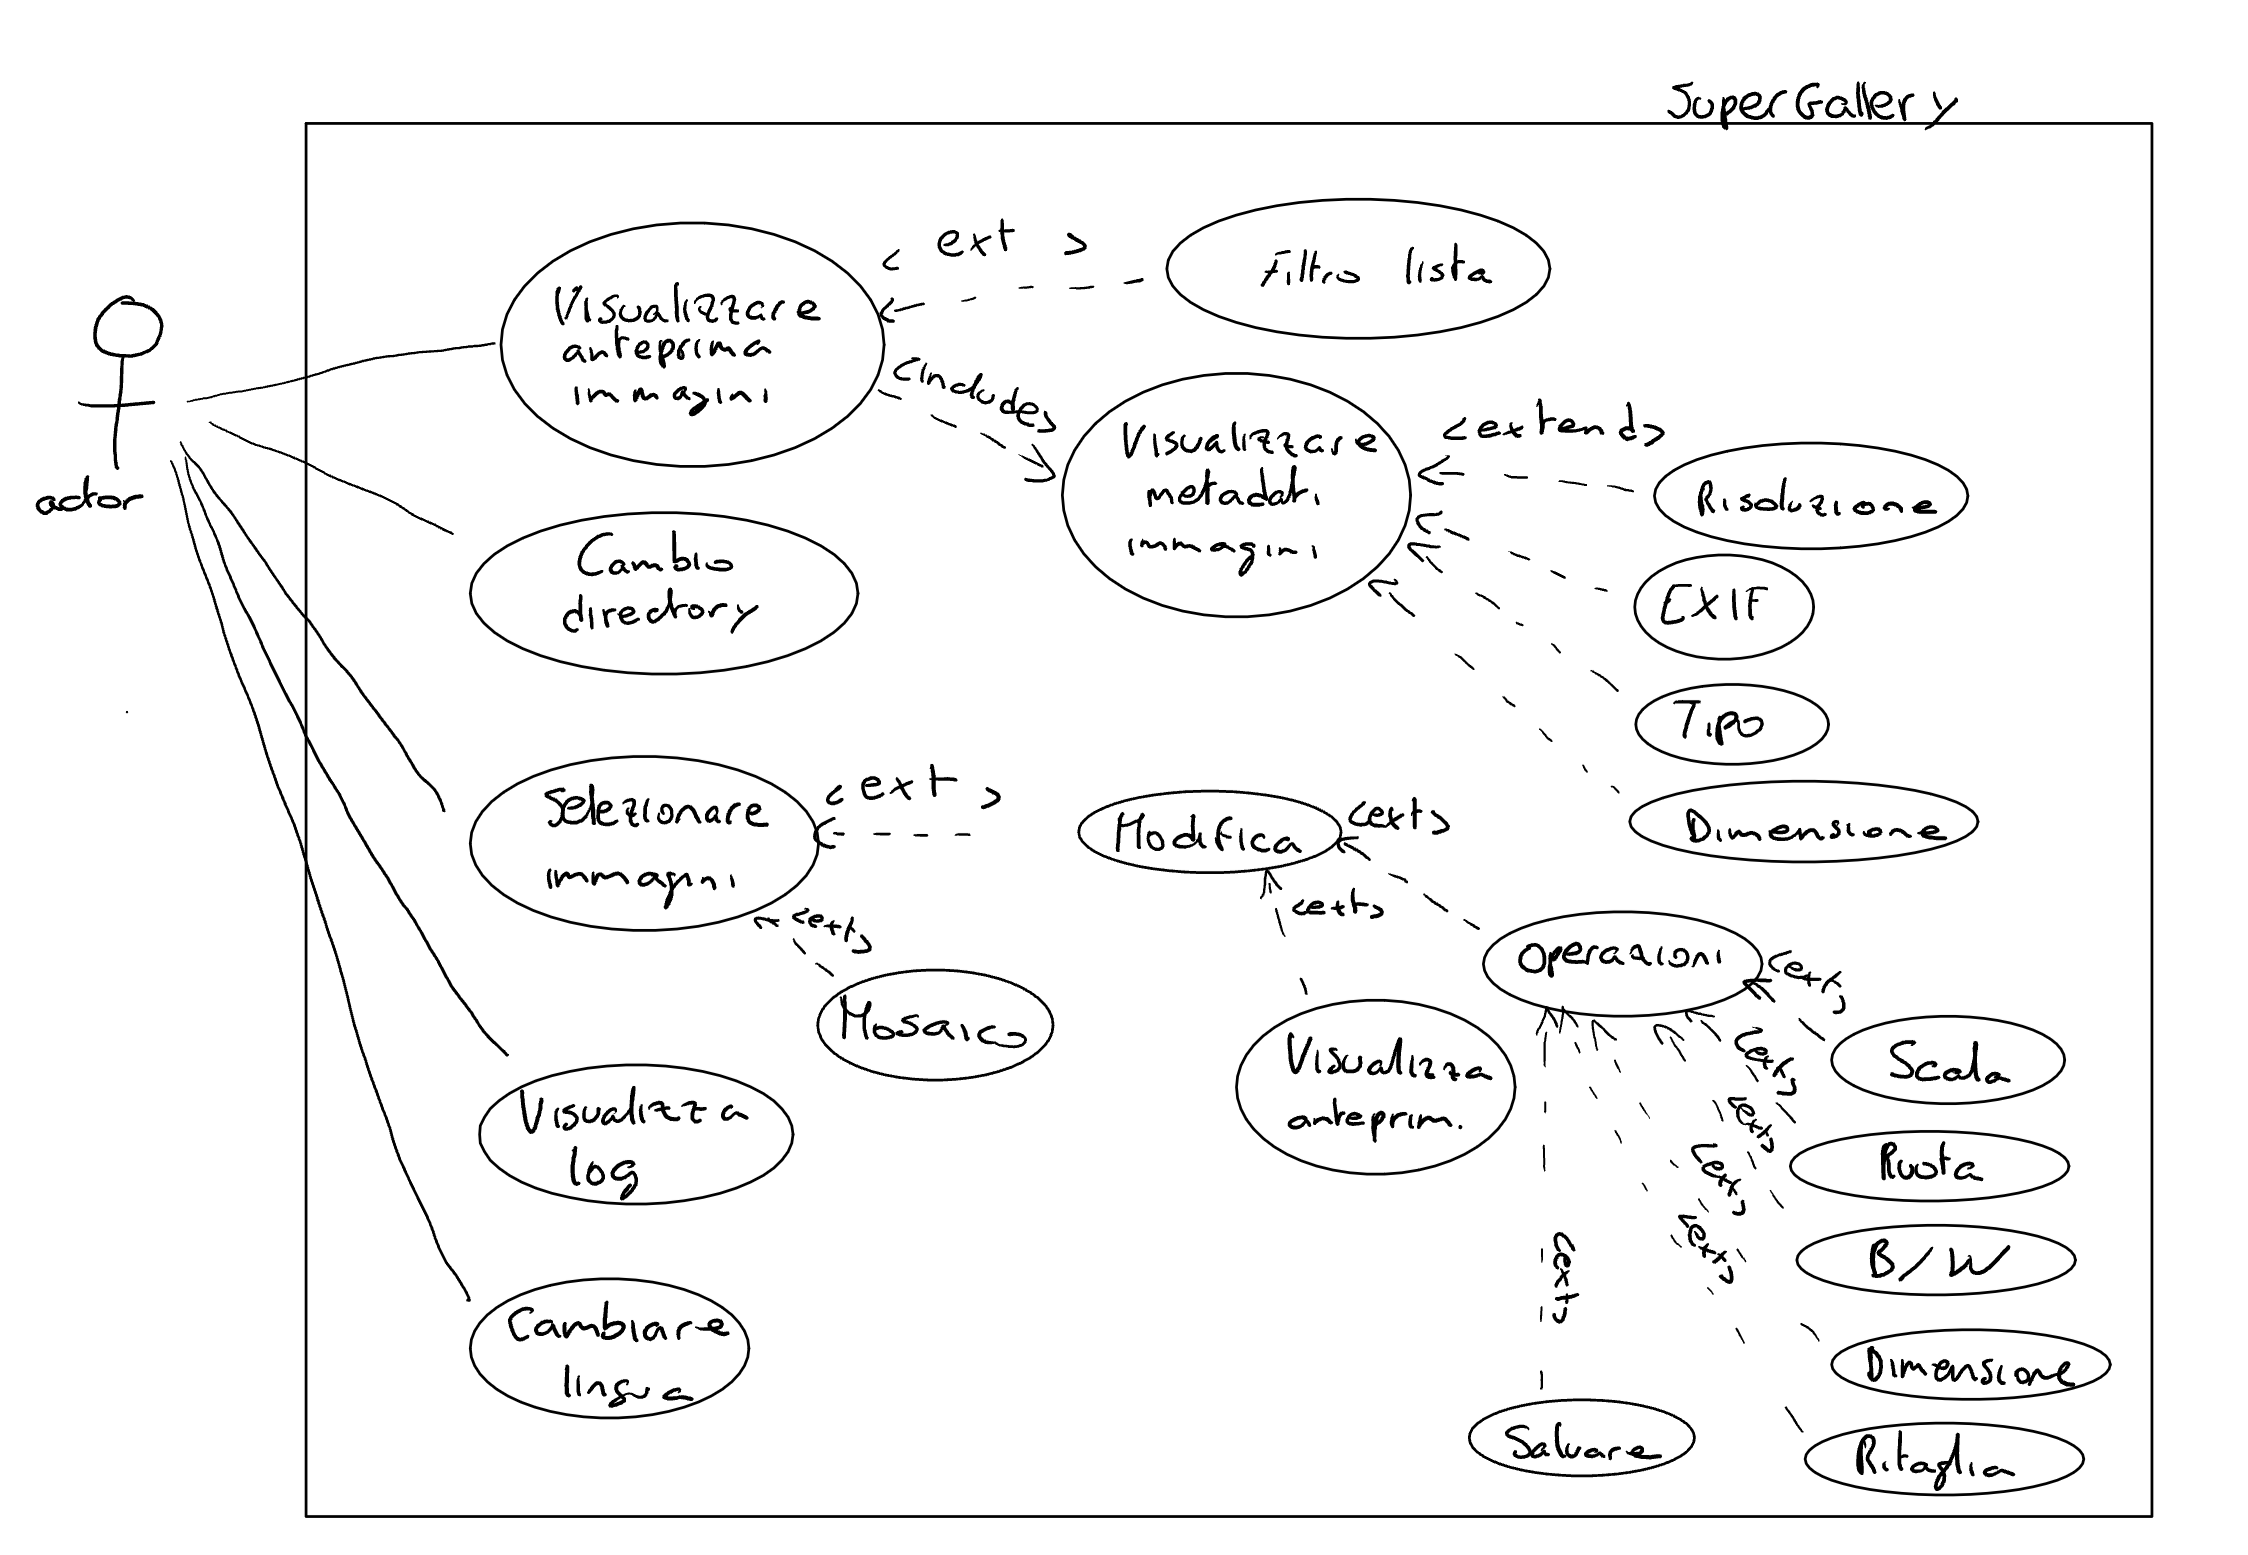 SuperGallery
actor
Visualizzare
anteprima
immagini
< ext >
Filtro lista
<include>
Visualizzare
metadati
immagini
<extend>
Risoluzione
EXIF
Tipo
Dimensione
Cambio
directory
Selezionare
immagini
< ext >
<ext>
Mosaico
Modifica
<ext>
<ext>
Visualizza
anteprim.
Operazioni
<ext>
Scala
<ext>
Ruota
<ext>
B/W
<ext>
Dimensione
<ext>
Ritaglia
<ext>
Salvare
Visualizza
log
Cambiare
lingua